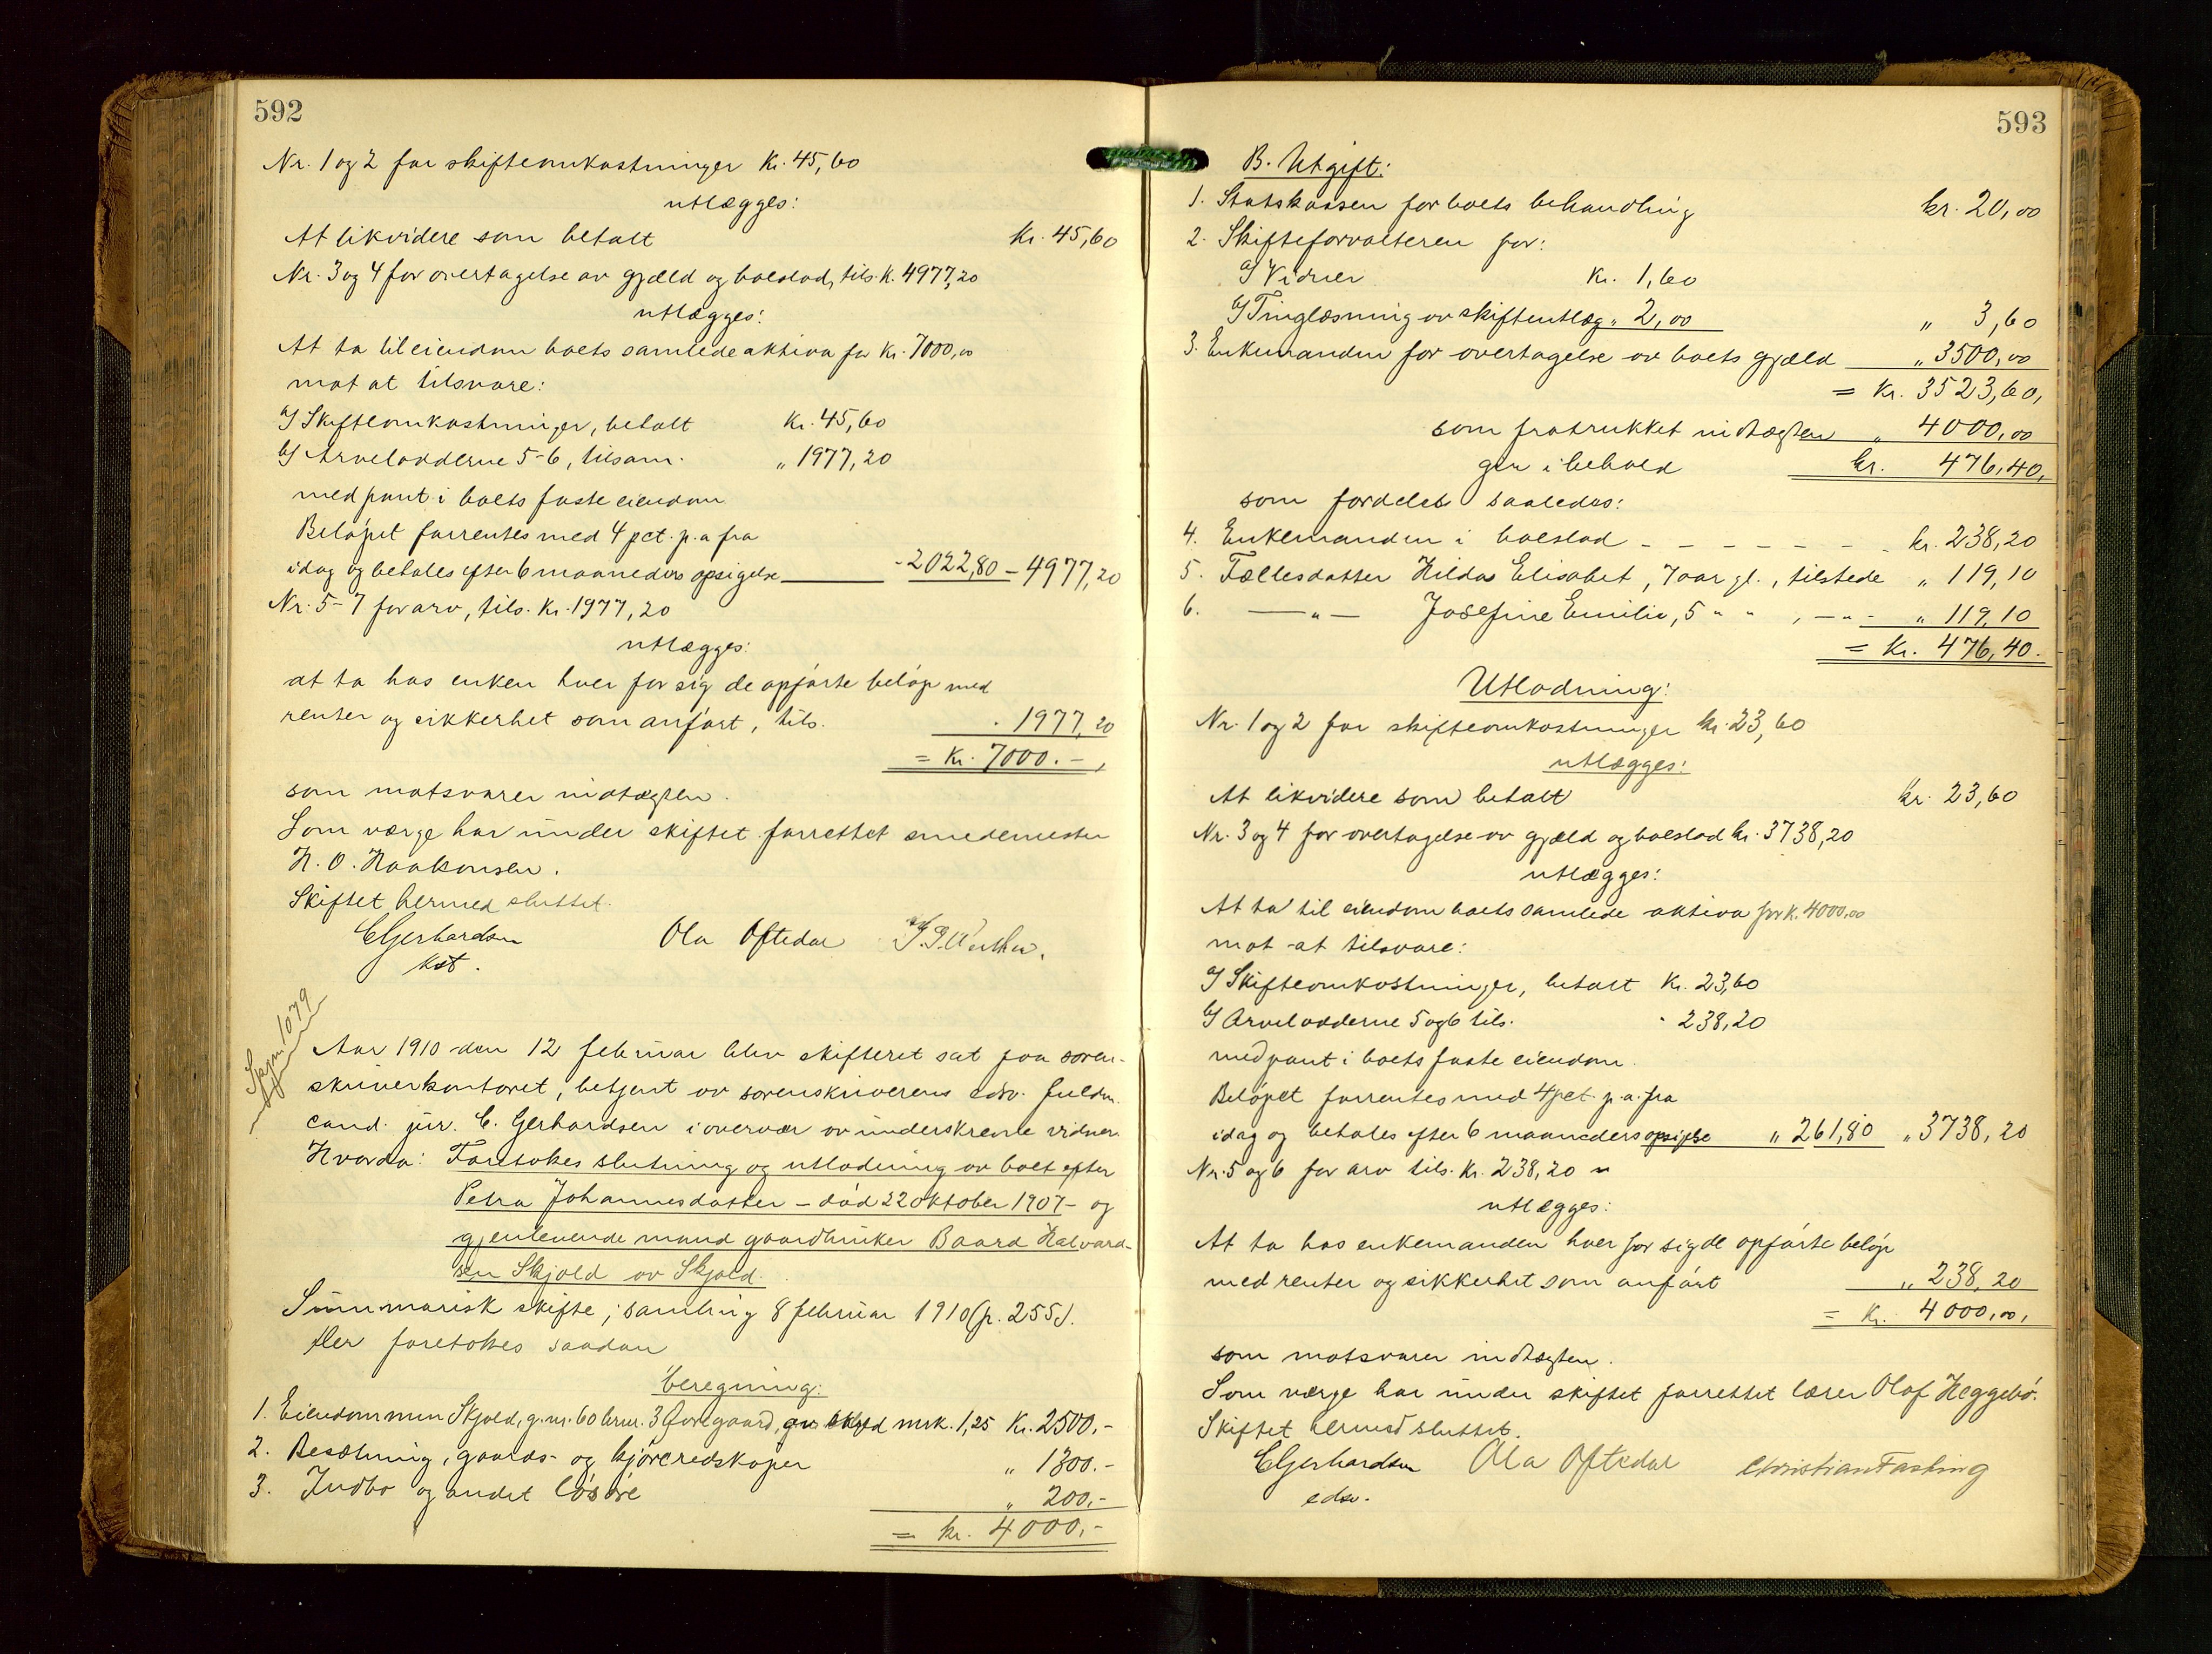 592
Nr. 1 og 2 for skifteomkostninger Kr. 45,60
utlægges:
At likvidere som betalt Kr. 45,60
Nr. 3 og 4 for overtagelse av gjæld og boeslod, tils. K. 4977,20
utlægges:
At ta til eiendom boets samlede aktiva for Kr. 7000,00
mot at tilsvare:
a/ Skifteomkostninger, betalt Kr. 45,60
b/ Arveloddene 5-6, tilsam. " 1977,20
med pant i boets faste eiendom
Beløpet forrentes med 4 pct. p. a fra
idag og betales efter 6 maaneders opsigelse - 2022,80 - 4977,20
Nr. 5-7 for arv, tils. Kr. 1977,20
utlægges:
at ta hos enken hver for sig de opførte beløp med
renter og sikkerhet som anført, tils. . 1977,20
= Kr. 7000.-,
som motsvarer indtægten.
Som værge har under skiftet forrettet smedemester
H. O. Haakonsen.
Skiftet hermed sluttet.
CGerhardsen Ola Oftedal
kst.
1079
Aar 1910 den 12 februar blev skifteret sat paa soren-
skriverkontoret, betjent av sorenskriverens edsv. fuldm.
cand. jur. C. Gerhardsen i overvær av underskrevne vidner.
Hvorda: Foretokes slutning og utlodning av boet efter
Petra Johannesdatter - død 22 oktober 1907 - og
gjenlevende mand gaardbruker Baard Halvard-
sen Skjold av Skjold.
Summarisk skifte; samling 8 februar 1910 (p. 255).
Der foretokes saadan
beregning:
1. Eiendommen Skjold, g.nr. 60 brnr. 3 , av skyld mrk. 1,25 Kr. 2500.-
2. Besætning, gaards- og kjøreredskaper " 1300.-
3. Indbo og andet løsøre " 200.-
= kr. 4000.-
593
B. Utgift:
1. Statskassen for boets behandling kr. 20,00
2. Skifteforvalteren for:
a/ Vidner Kr. 1,60
b/ Tinglæsning av skifteutlæg " 2,00 " 3,60
3. Enkemanden for overtagelse av boets gjæld " 3500,00
= Kr. 3523,60,
som fratrukket indtægten " 4000,00
gir i behold kr. 476,40,
som fordeles saaledes:
4. Enkemanden i boeslod - - - - - - - kr. 238,20
5. Fællesdatter Hilda Elisabet, 7 aar gl., tilstede " 119,10
6. — " — Josefine Emilie, 5 " " , — " — " 119,10
= Kr. 476,40.
Utlodning:
Nr. 1 og 2 for skifteomkostninger kr. 23,60
utlægges:
At likvidere som betalt kr. 23,60
Nr. 3 og 4 for overtagelse av gjæld og boeslod kr. 3738,20
utlægges:
At ta til eiendom boets samlede aktiva for K. 4000,00
mot at tilsvare:
a/ Skifteomkostninger, betalt Kr. 23,60
b/ Arveloddene 5 og 6 tils. " 238,20
med pant i boets faste eiendom.
Beløpet forrentes med 4 pct. p. a. fra
idag og betales efter 6 maaneders opsigelse " 261,80 " 3738,20
Nr. 5 og 6 for arv tils. Kr. 238,20
utlægges:
At ta hos enkemanden hver for sig de opførte beløp
med renter og sikkerhet som anført " 238,20
= Kr. 4000,00,
som motsvarer indtægten.
Som værge har under skiftet forrettet lærer Olaf Heggebø.
Skiftet hermed sluttet.
CGerhardsen Ola Oftedal Christian Fasting
edsv.